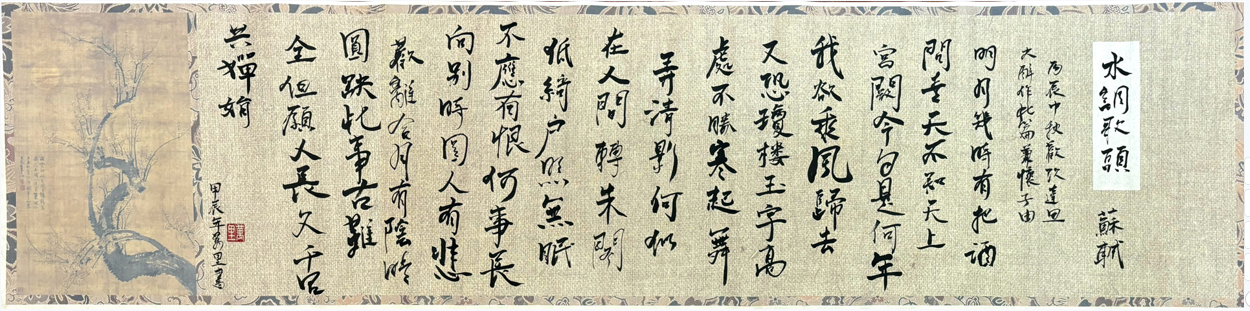 水調歌頭
蘇軾
丙辰中秋歡飲達旦
大醉作此篇兼懷子由
明月幾時有把酒
問青天不知天上
宮闕今夕是何年
我欲乘風歸去
又恐瓊樓玉宇高
處不勝寒起舞
弄清影何似
在人間轉朱閣
低綺户照無眠
不應有恨何事長
向别時圓人有悲
歡離合月有陰晴
圓缺此事古難
全但願人長久千里
共嬋娟
甲辰年萬里書
萬里